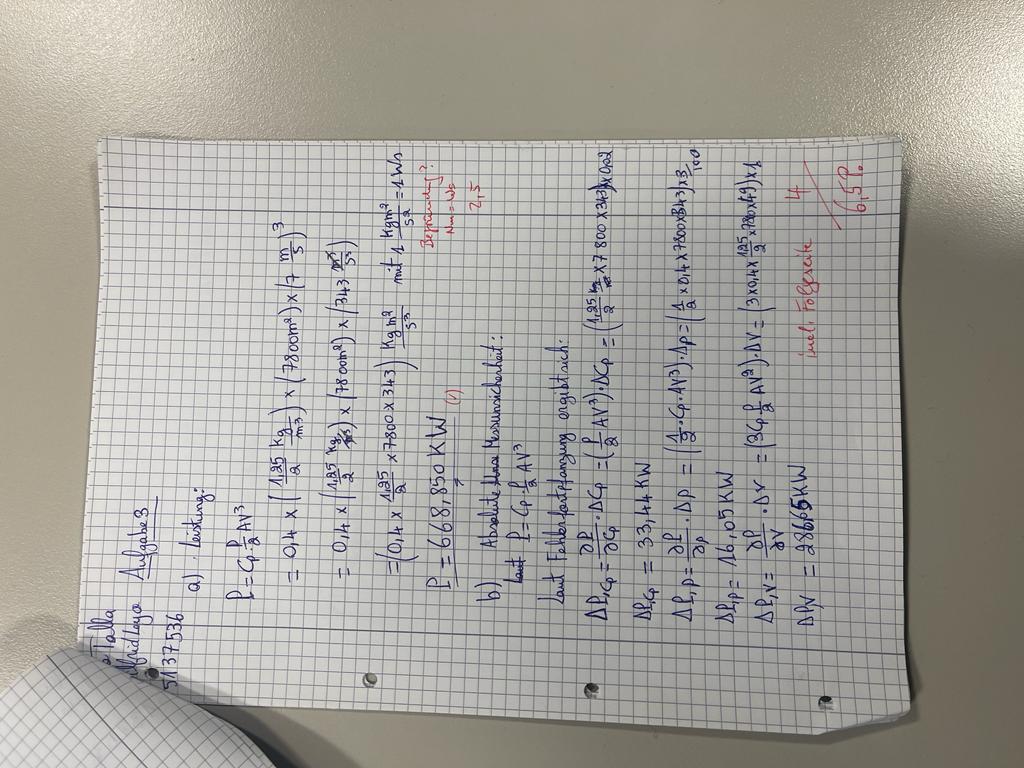 Talla
51137536
Aufgabe 3
a) Leistung:
P = Cp ρ/2 AV³
= 0,4 × (1,25/2 kg/m³) × (7800m²) × (7 m/s)³
= 0,4 × (1,25/2 kg/m³) × (7800m²) × (343 m³/s³)
= (0,4 × 1,25/2 × 7800 × 343) kgm²/s³ mit 1 kgm²/s² = 1 Ws
Begründung?
Nm = Ws
2,5
P = 668,850 KW (1)
b) Absolute Messunsicherheit:
P = Cp · ρ/2 AV³
Laut Fehlerfortpflanzung ergibt sich:
ΔP,Cp = ∂P/∂Cp · ΔCp = (ρ/2 AV³) · ΔCp = (1,25/2 × 7800 × 343) × 0,02
ΔP,Cp = 33,44 KW
ΔP,ρ = ∂P/∂ρ · Δρ = (1/2 · Cp · AV³) · Δρ = (1/2 × 0,4 × 7800 × 343) × 3/100
ΔP,ρ = 16,05 KW
ΔP,V = ∂P/∂V · ΔV = (3Cp ρ/2 AV²) · ΔV = (3 × 0,4 × 1,25/2 × 7800 × 49) × 1
ΔP,V = 286,65 KW
inkl. Folgeseite 4/6,5 P.